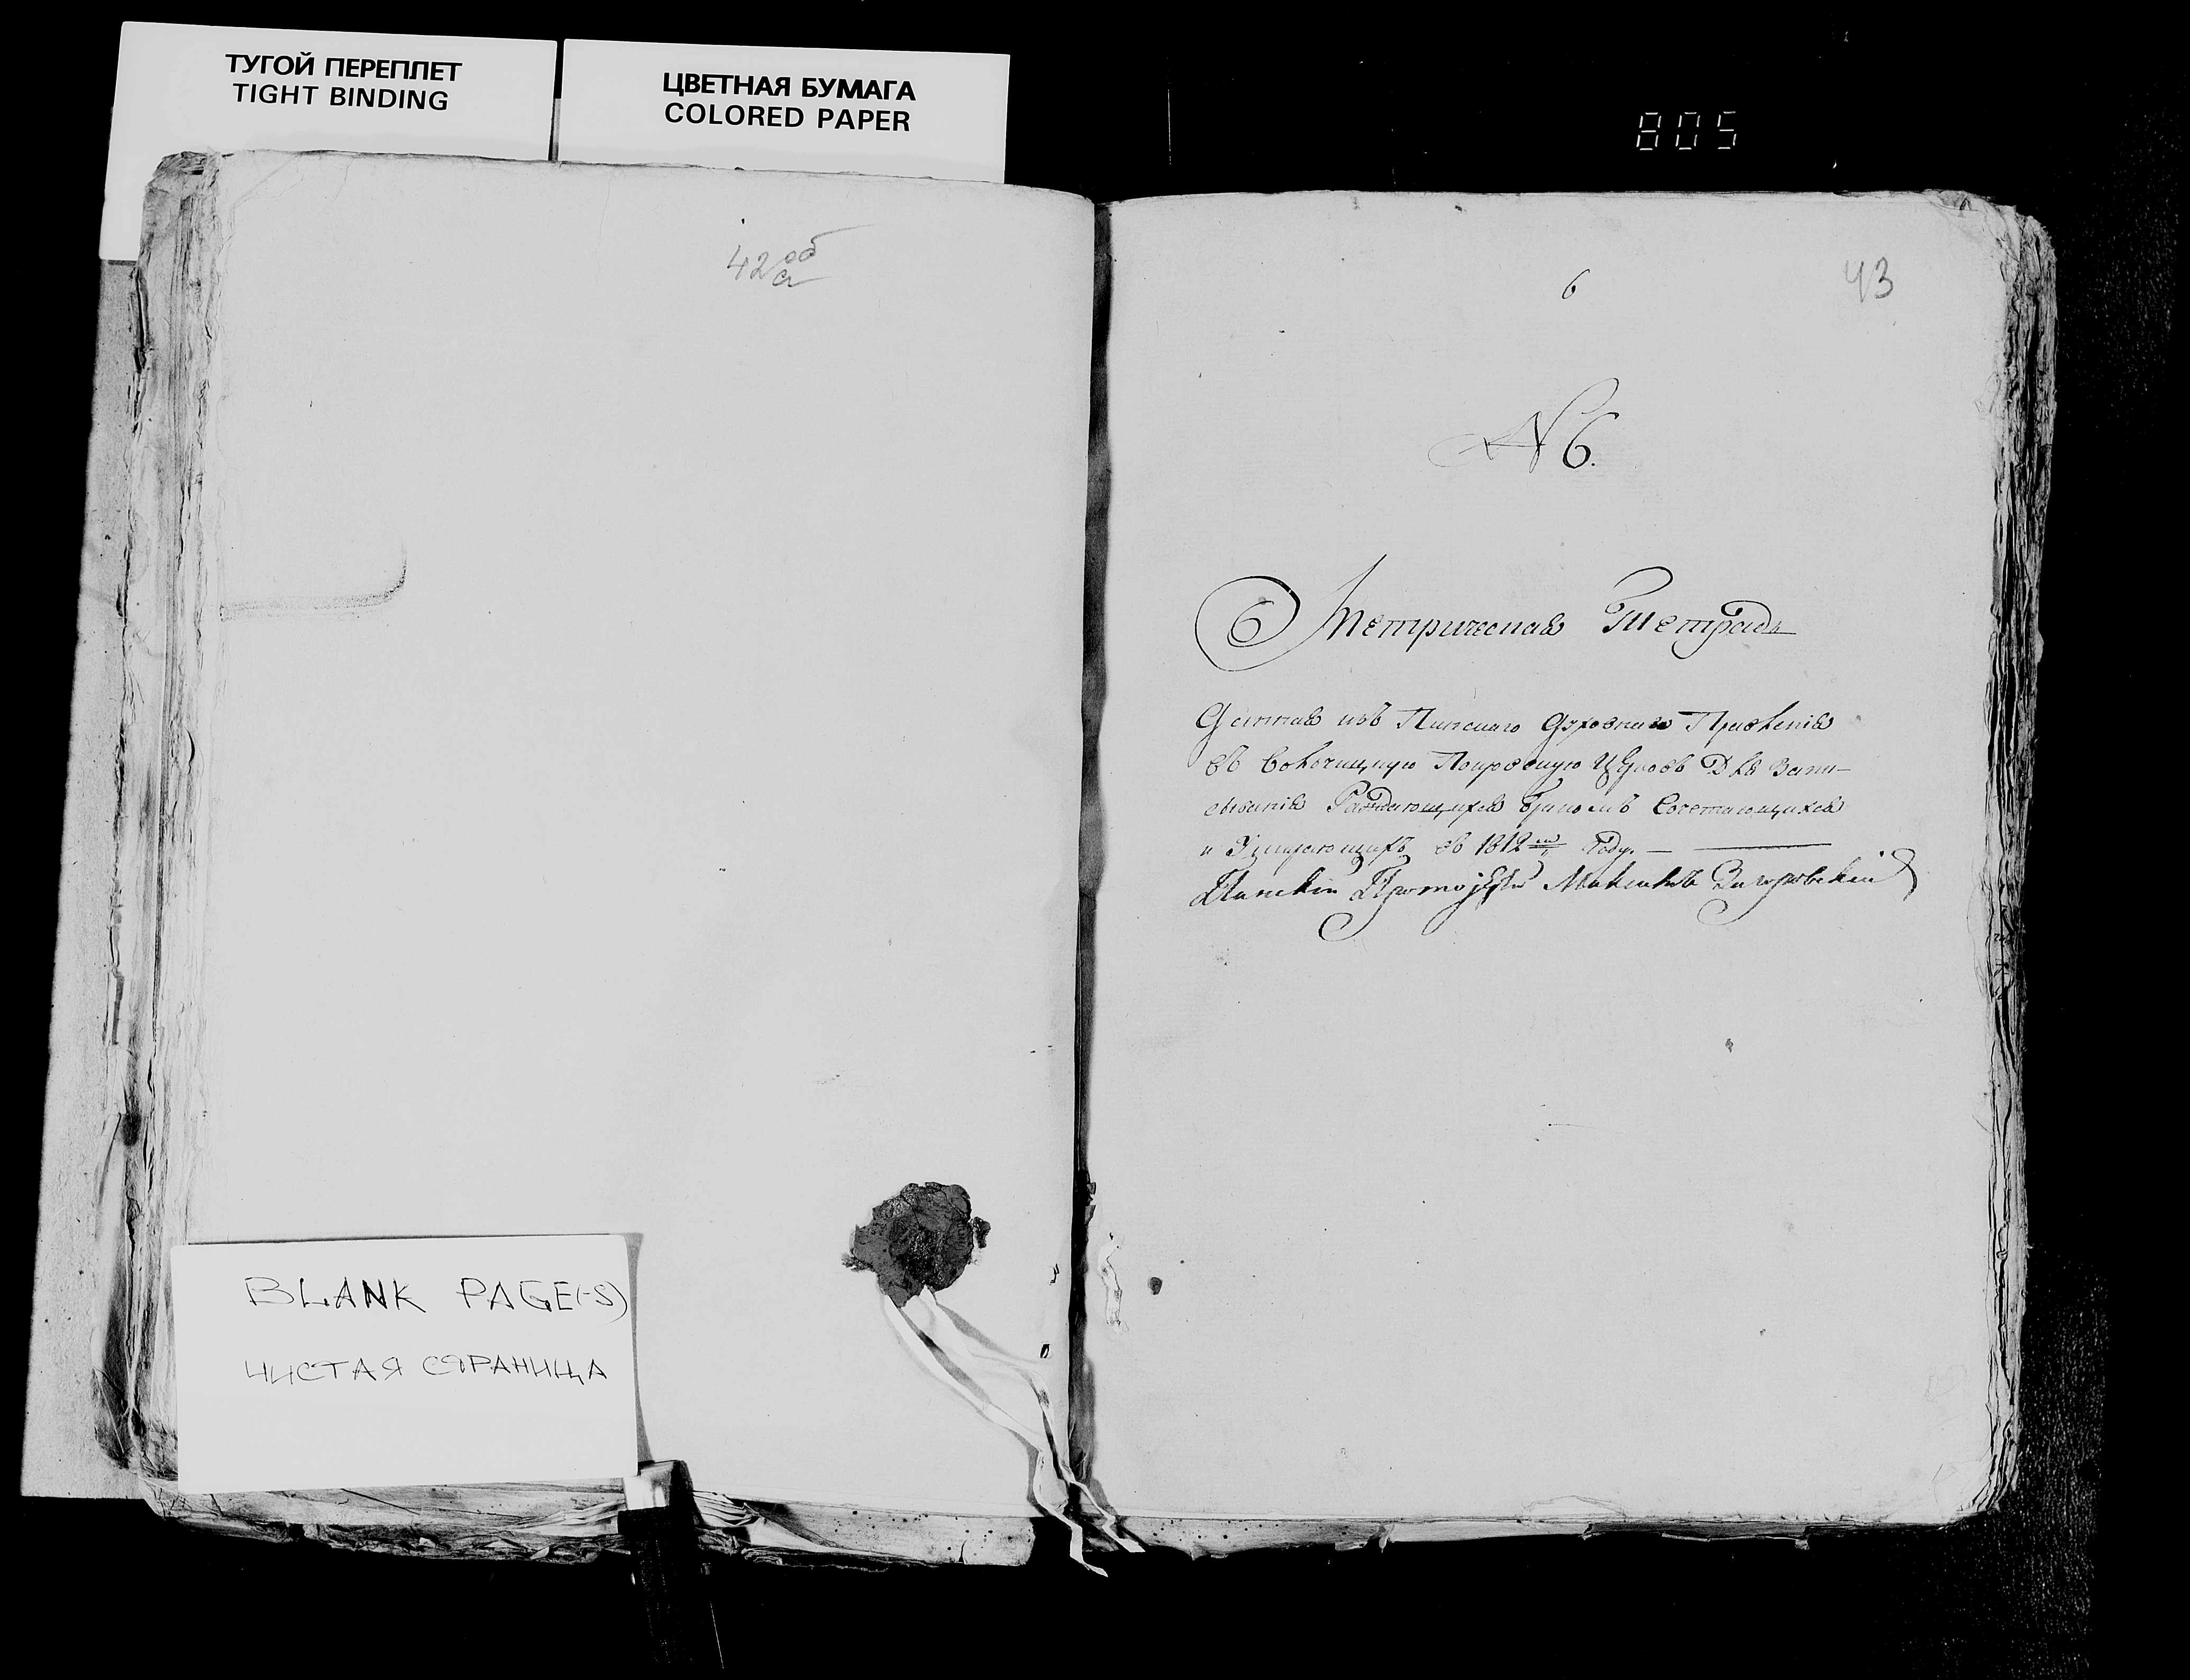 ТУГОЙ ПЕРЕПЛЕТ
TIGHT BINDING
ЦВЕТНАЯ БУМАГА
COLORED PAPER
805
42 об
6
43
N 6.
Метрическая Тетрадь
Данная изъ Пинскаго Духовнаго Правленія
въ Покровскую Церковь Для Запи-
сыванія Раждающихся Бракомъ Сочетающихся
и Умирающихъ въ 1812 Году. —
Пинскій Протоіерей Загоровскій
BLANK PAGE(-S)
ЧИСТАЯ СТРАНИЦА